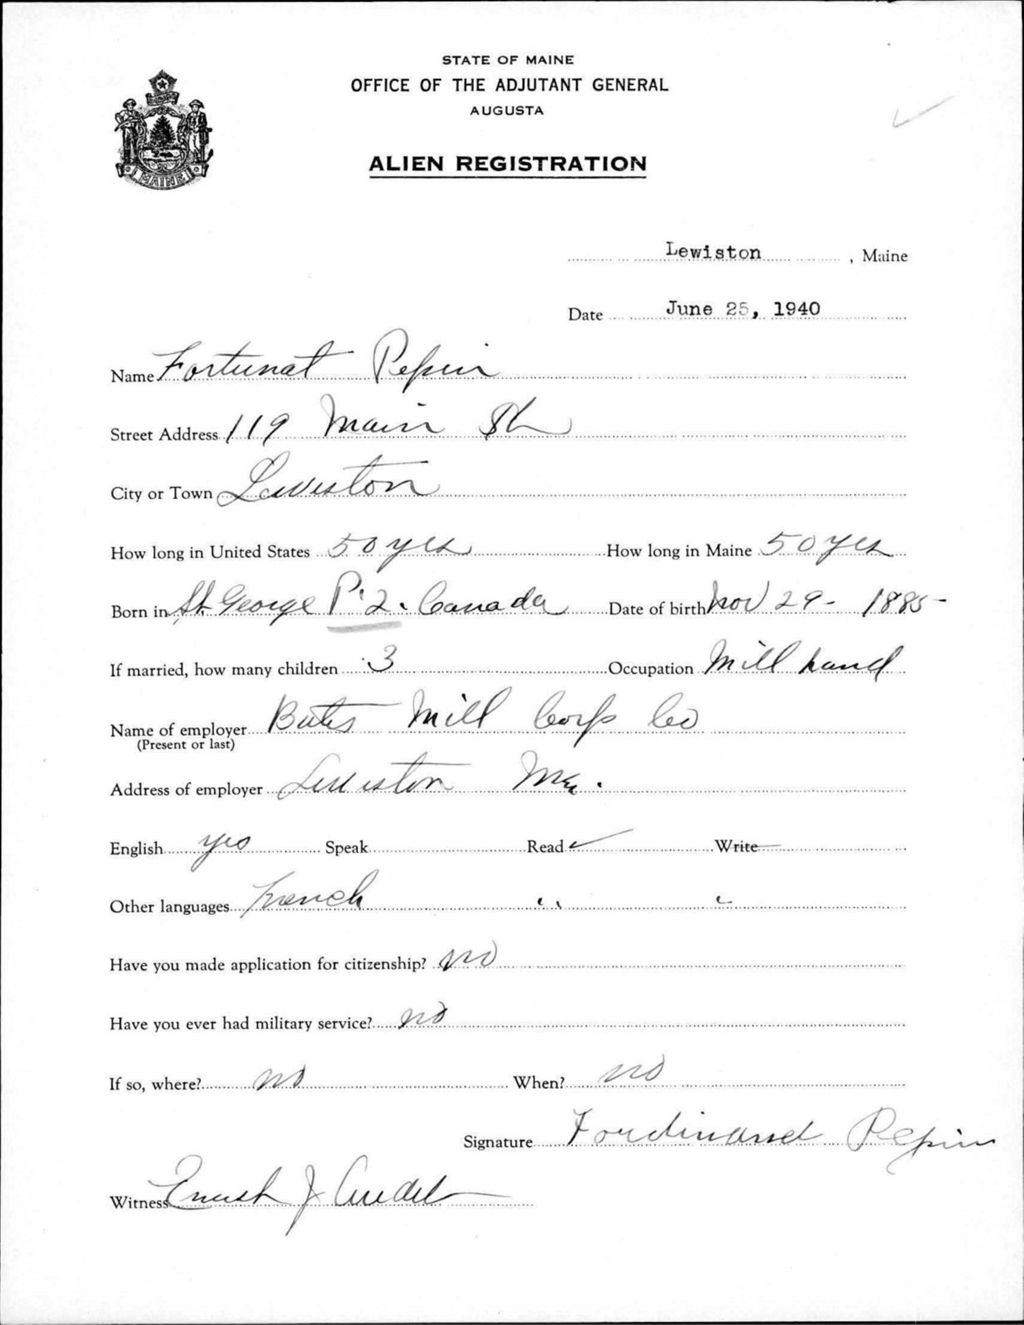 STATE OF MAINE
OFFICE OF THE ADJUTANT GENERAL
AUGUSTA
ALIEN REGISTRATION
MAINE
Lewiston, Maine
Date June 25, 1940
Name Fortunat Pepin
Street Address 119 Main St
City or Town Lewiston
How long in United States 50 yrs How long in Maine 50 yrs
Born in St. George P.Q. Canada Date of birth Nov 29 - 1885 -
If married, how many children 3 Occupation Mill hand
Name of employer Bates Mill Corp Co
(Present or last)
Address of employer Lewiston Me.
English yes Speak Read ✓ Write
Other languages French " "
Have you made application for citizenship? no
Have you ever had military service? no
If so, where? no When? no
Signature Ferdinand Pepin
Witness J